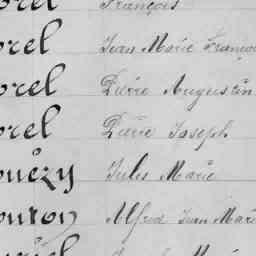 orel François
orel Jean Marie François
orel Pierre Augustin
orel Pierre Joseph
ouëzy Jules Marie
outon Alfred Jean Marie